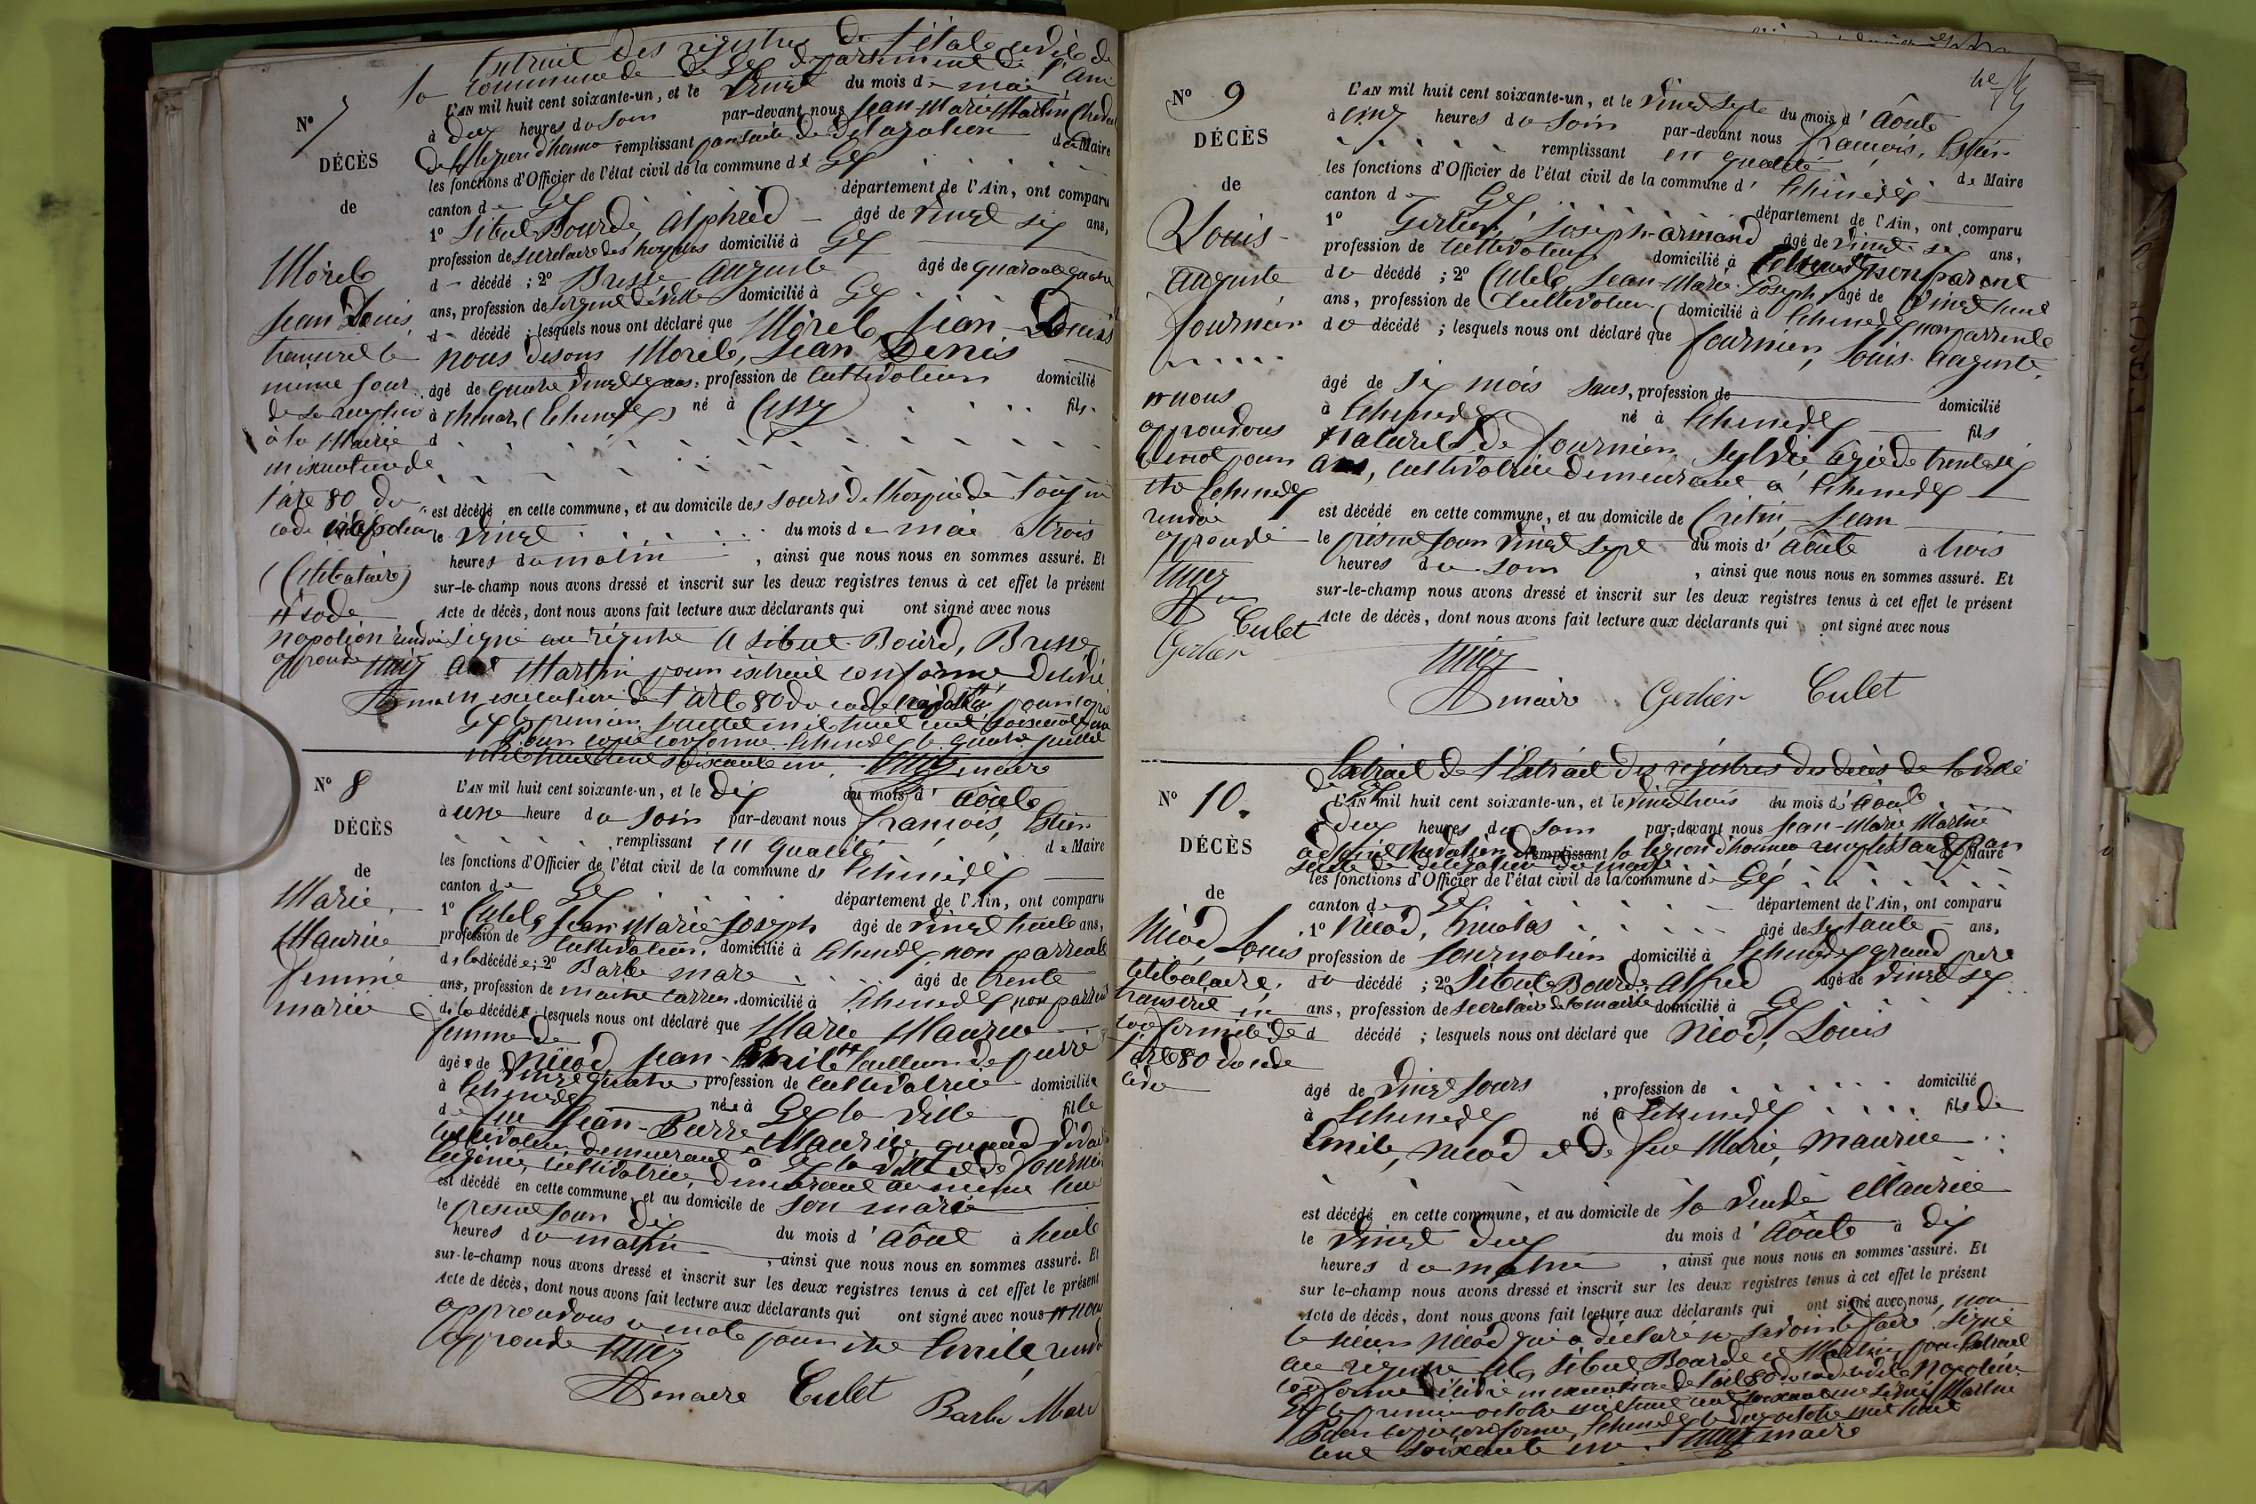 Extrait des registres de l'état civil de
la commune de de Gex département de l'Ain
N° 7
L'AN mil huit cent soixante-un, et le Vingt du mois de mai
à deux heures du soir par-devant nous Jean-Marie Martin
remplissant par suite de délégation de Maire
DÉCÈS
les fonctions d'Officier de l'état civil de la commune de Gex
de
canton de Gex département de l'Ain, ont comparu
1° Sibuet Bourde, Alphred âgé de vingt six ans,
profession de secretaire des hospices domicilié à Gex
Morel
d décédé ; 2° Brusse Auguste âgé de quarante quatre
ans, profession de sergent de ville domicilié à Gex
Jean Denis
d décédé ; lesquels nous ont déclaré que Morel, Jean Louis
transcrit le
nous disons Morel, Jean Denis
même jour
âgé de quatre vingt ans, profession de cultivateur domicilié
de sa reception
à (Echenevex) né à Cessy fils
à la Mairie
d
en execution de
l'art 80 du
est décédé en cette commune, et au domicile des sœurs de l'hospice de
code napoléon
le vingt du mois de mai à trois
heures du matin , ainsi que nous nous en sommes assuré. Et
(Célibataire)
sur-le-champ nous avons dressé et inscrit sur les deux registres tenus à cet effet le présent
Acte de décès, dont nous avons fait lecture aux déclarants qui ont signé avec nous
napoléon
signé au registre A Sibuet Bourd, Brusse
approuvé
et Martin pour extrait conforme delivré
en execution de l'art 80 du code pour copie
Gex le premier juillet mil huit cent soixante un
Pour copie conforme Echenevex le quatre juillet
mil huit cent soixante un. maire
N° 8
L'AN mil huit cent soixante-un, et le dix du mois d' Août
DÉCÈS
à une heure du soir par-devant nous François,
remplissant en qualité de Maire
de
les fonctions d'Officier de l'état civil de la commune d' Echenevex
canton de Gex département de l'Ain, ont comparu
Marie
1° Culet Jean Marie Joseph âgé de vingt huit ans,
Maurice
profession de cultivateur, domicilié à Echenevex non parrent
femme
de la décédée ; 2° Barbe marc âgé de trente
mariée
ans, profession de maître carrier domicilié à Echenevex non parrent
de la décédée lesquels nous ont déclaré que Marie Maurice
femme de Nicod, Jean tailleur de pierre
âgée de vingt quatre profession de cultivatrice domiciliée
à Echenevex née à Gex la Ville fille
de feu Jean-Pierre Maurice quand vivait
cultivateur demeurant à Gex la Ville et de Fournier
cultivatrice, demeurant au même lieu
est décédé en cette commune, et au domicile de son mari
le présent jour dix du mois d' Août à huit
heures du matin , ainsi que nous nous en sommes assuré. Et
sur-le-champ nous avons dressé et inscrit sur les deux registres tenus à cet effet le présent
Acte de décès, dont nous avons fait lecture aux déclarants qui ont signé avec nous nous
approuvons le mot Emile
approuvé
maire Culet Barbe Marc
N° 9
L'AN mil huit cent soixante-un, et le vingt sept du mois d' Août
à cinq heures du soir par-devant nous François,
DÉCÈS
remplissant en qualité de Maire
les fonctions d'Officier de l'état civil de la commune d' Echenevex
de
canton de Gex département de l'Ain, ont comparu
Louis
1° Gerlier, Joseph-armand âgé de vingt six ans,
profession de cultivateur domicilié à Echenevex non parent
auguste
du décédé ; 2° Culet, Jean-Marie Joseph, âgé de vingt huit
ans, profession de Cultivateur domicilié à Echenevex non parrente
fournier
du décédé ; lesquels nous ont déclaré que fournier, Louis Auguste
nous
âgé de six mois sans, profession de domicilié
approuvons
à Echenevex né à Echenevex fils
le mot
Naturel de fournier Sylvie âgée de trente six
Echenevex
ans, cultivatrice demeurant à Echenevex
est décédé en cette commune, et au domicile de Cretin, Jean
approuvé
le présent jour vingt sept du mois d' Août à trois
heures du soir , ainsi que nous nous en sommes assuré. Et
sur-le-champ nous avons dressé et inscrit sur les deux registres tenus à cet effet le présent
Acte de décès, dont nous avons fait lecture aux déclarants qui ont signé avec nous
Culet
Gerlier
maire Gerlier Culet
Extrait de l'Extrait des régistres des décès de la ville
de Gex
N° 10.
L'AN mil huit cent soixante-un, et le vingt trois du mois d' Août
à deux heures du soir par-devant nous Jean-Marie Martin
DÉCÈS
remplissant la legion d'honneur remplissant par de Maire
suite de délégation du maire
les fonctions d'Officier de l'état civil de la commune de Gex
de
canton de Gex département de l'Ain, ont comparu
Nicod, Louis
1° Nicod, Nicolas âgé de septante ans,
profession de Journalier domicilié à Echenevex grand pere
célibataire,
du décédé ; 2° Sibuet Bourde Alfred âgé de vingt six
transcrit en
ans, profession de secretaire de la mairie domicilié à Gex
conformité de
d décédé ; lesquels nous ont déclaré que Nicod, Louis
l'art 80 du code
civil
âgé de vingt jours , profession de domicilié
à Echenevex né à Echenevex fils de
Emile, Nicod et de feu Marie, Maurice
est décédé en cette commune, et au domicile de la veuve Maurice
le vingt deux du mois d' Août à dix
heures du matin , ainsi que nous nous en sommes assuré. Et
sur le-champ nous avons dressé et inscrit sur les deux registres tenus à cet effet le présent
Acte de décès, dont nous avons fait lecture aux déclarants qui ont signé avec nous, non
le sieur Nicod qui a déclaré ne savoir le faire signé
au registre Sibuet Bourde et Martin pour Extrait
conforme délivré en execution de l'art 80 du code Napoléon
Gex le premier octobre mil huit cent soixante un signé Martin
Pour copie conforme, Echenevex le deux octobre mil huit
cent soixante un. maire